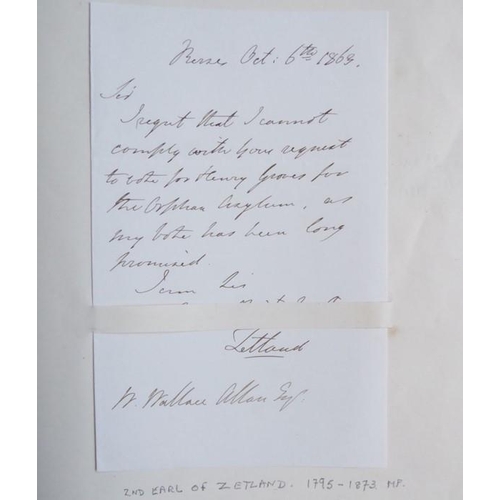 Oct: 6th 1863.
Sir
I regret that I cannot
comply with your request
to vote for Henry Groves for
the Orphan Asylum, as
my vote has been long
promised.
I am Sir
Zetland
W. Wallace Allan Esq.
2ND EARL OF ZETLAND. 1795-1873 MP.